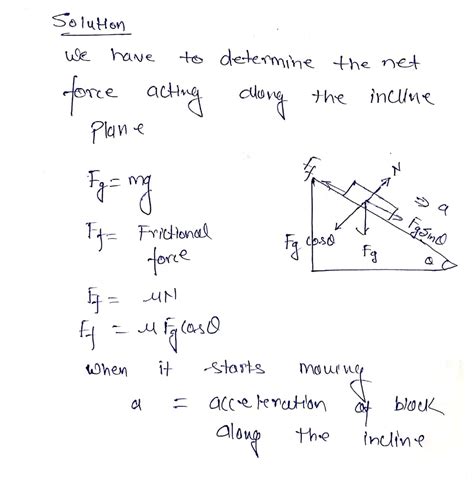 Solution
we have to determine the net
force acting along the incline
plane
Fg = mg
Ff = Frictional
force
Ff = μN
Ff = μ Fg cosθ
when it starts moving
a = acceleration of block
along the incline
Ff
N
⇒ a
Fg sinθ
Fg cosθ
Fg
θ